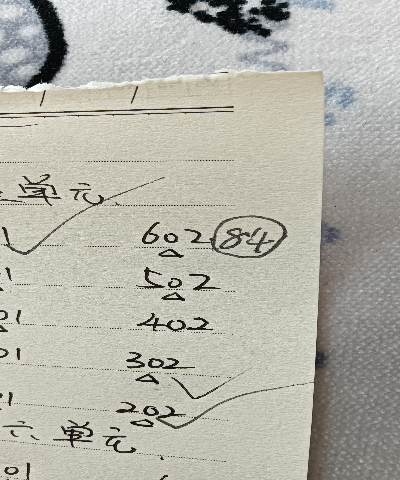 单元
602 84
502
01 402
01 302
202
六单元
01